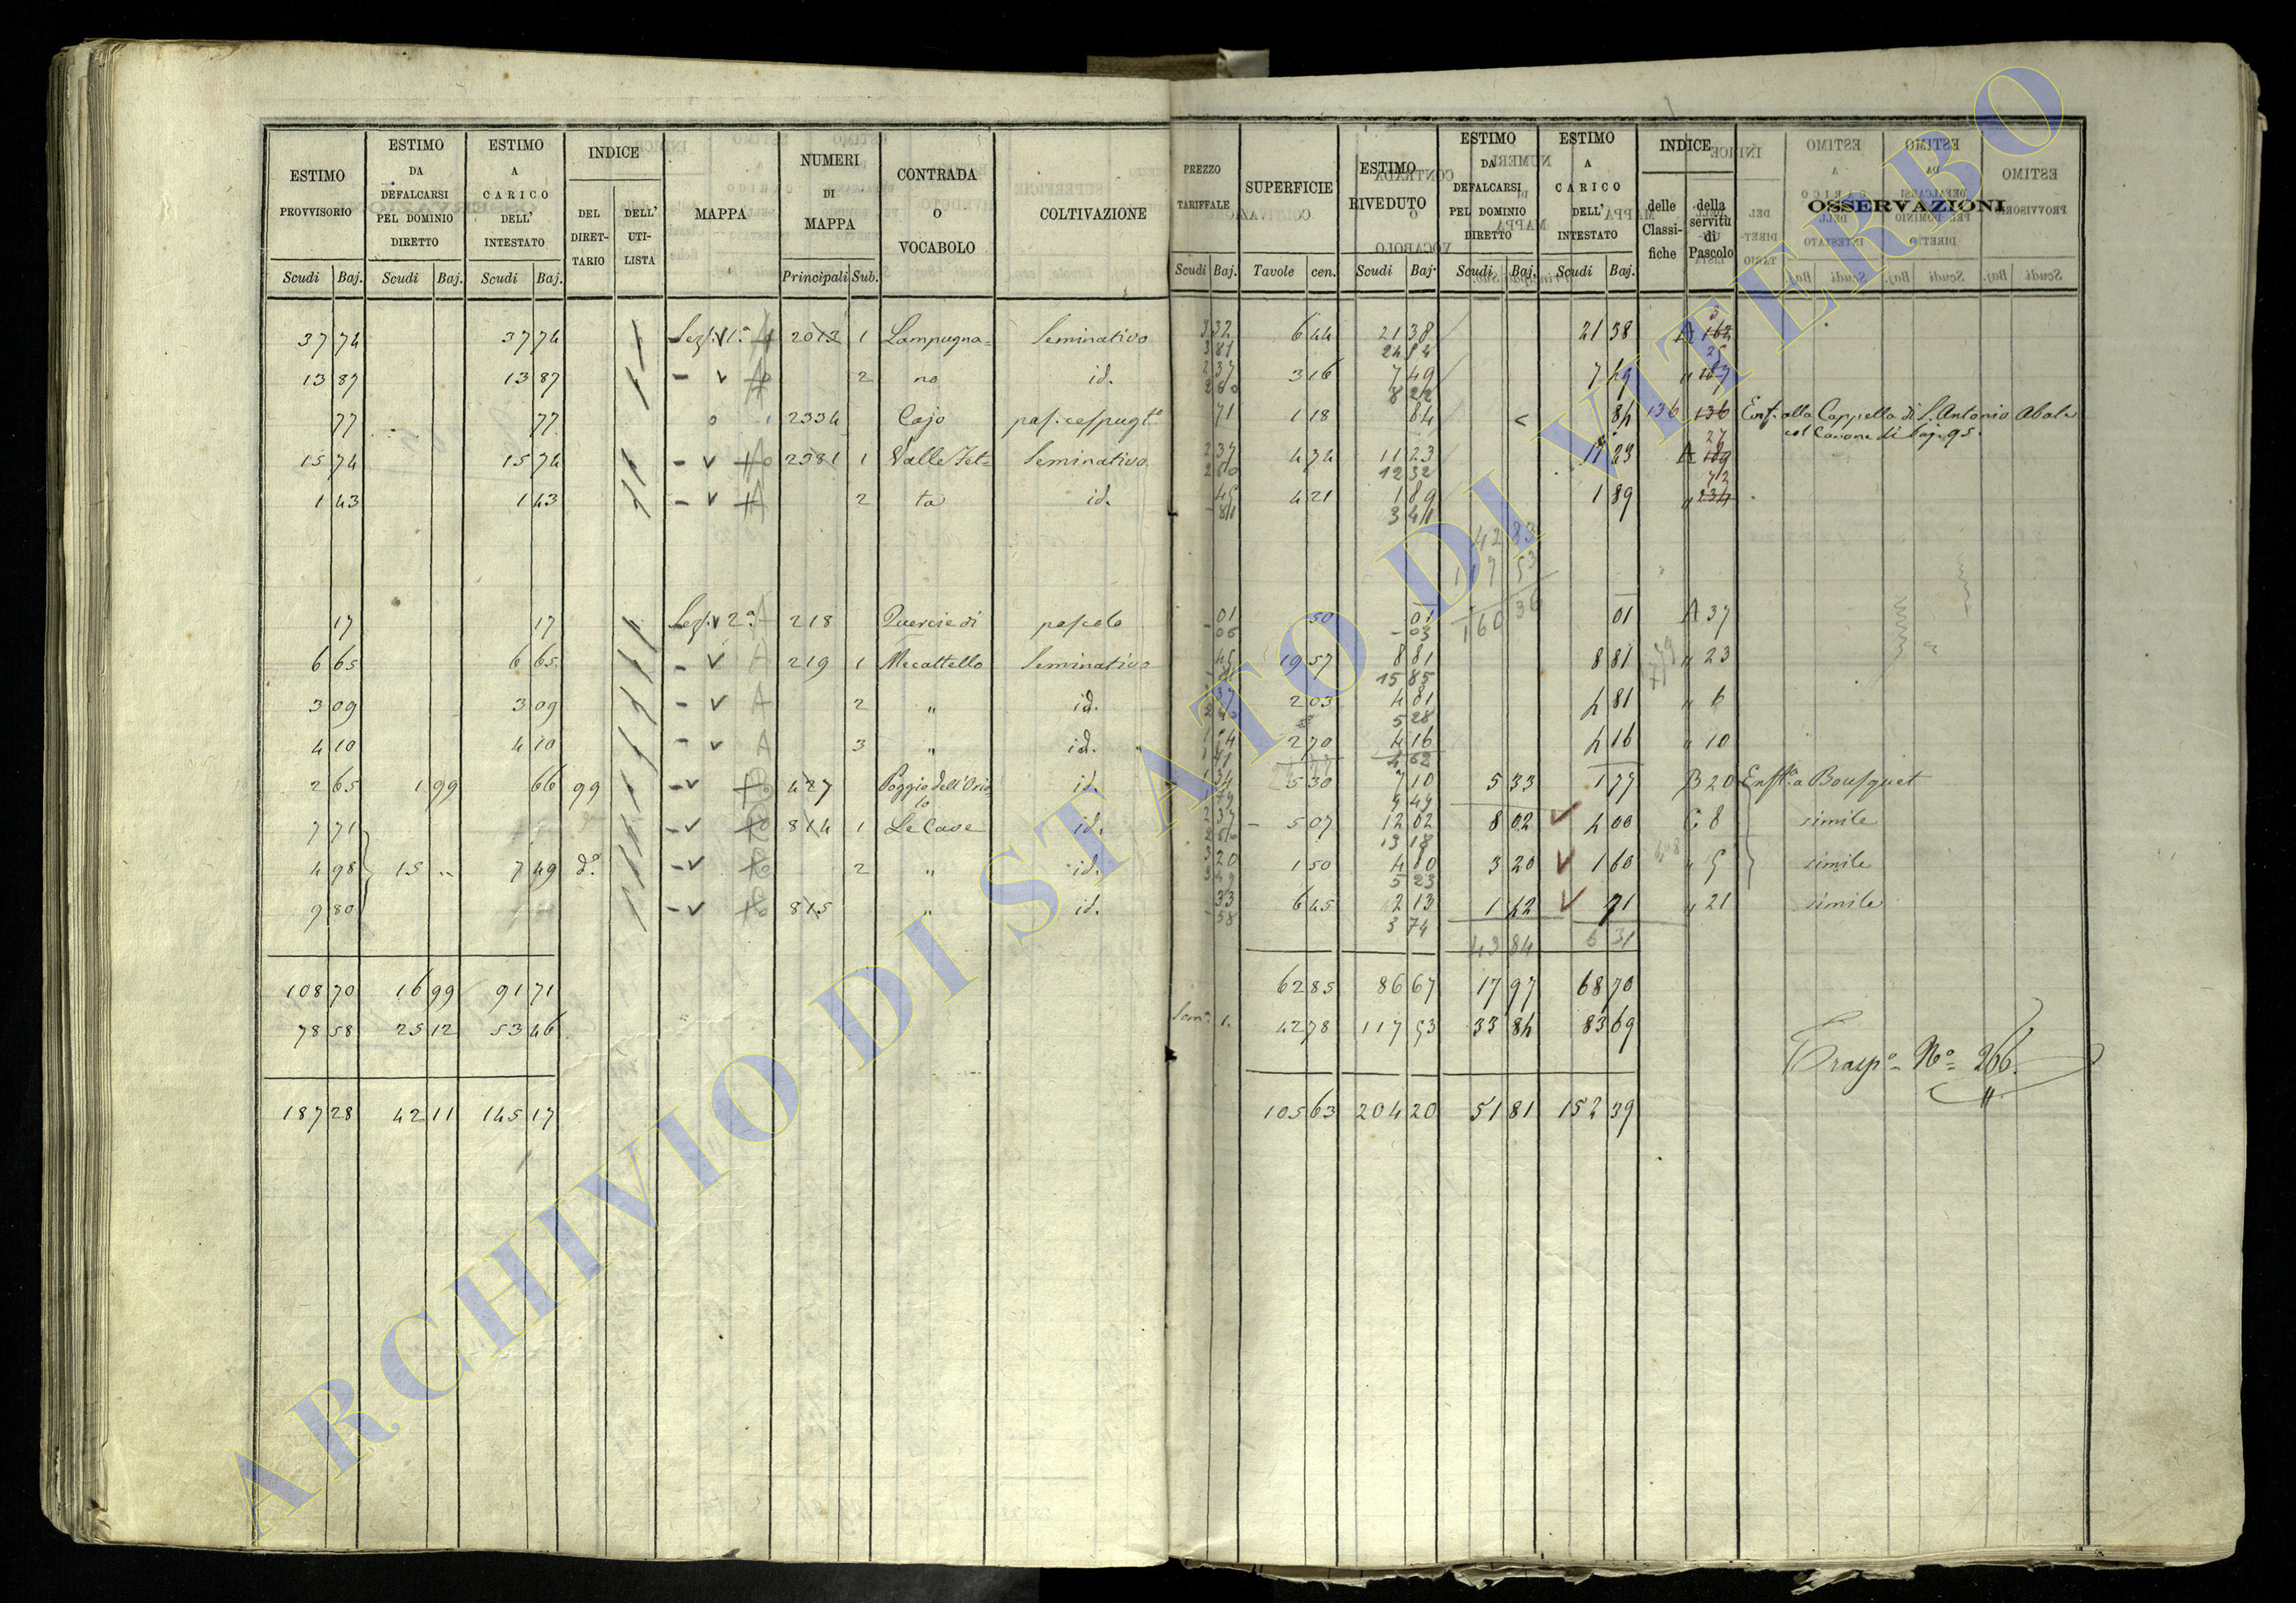 ESTIMO PROVVISORIO | ESTIMO DA DEFALCARSI PEL DOMINIO DIRETTO | ESTIMO A CARICO DELL' INTESTATO | INDICE | MAPPA | NUMERI DI MAPPA | CONTRADA O VOCABOLO | COLTIVAZIONE | PREZZO TARIFFALE | SUPERFICIE | ESTIMO RIVEDUTO | ESTIMO DA DEFALCARSI PEL DOMINIO DIRETTO | ESTIMO A CARICO DELL' INTESTATO | INDICE | OSSERVAZIONI
DEL DIRETTARIO | DELL' UTILISTA | delle Classifiche | della servitù di Pascolo
Scudi | Baj. | Scudi | Baj. | Scudi | Baj. | Principali | Sub. | Scudi | Baj. | Tavole | cen. | Scudi | Baj. | Scudi | Baj. | Scudi | Baj.
37 74 | 37 74 | Sez. 1ª | 2013 | 1 | Lampugna= | Seminativo | 3 32 | 6 44 | 21 38 | 21 38 | A 162 3
3 81 | 24 54
13 87 | 13 87 | - v | 2 | no | id. | 2 37 | 3 16 | 7 49 | 7 49 | " 25
2 60 | 8 22
77 | 77 | 2334 | Cajo | pas. cespugto | 71 | 1 18 | 84 | 84 | 136 136 | Enf. alla Cappella di S. Antonio Abate
col Canone di baj. 95.
15 74 | 15 74 | - v | 2381 | 1 | Valle Jet= | Seminativo | 2 37 | 4 74 | 11 23 | 11 23 | A 189 27
2 60 | 12 32
1 43 | 1 43 | - v | 2 | ta | id. | 45 | 4 21 | 1 89 | 1 89 | " 234 72
- 81 | 3 41
42 83
117 53
160 36
17 | 17 | Sez. 2ª | 218 | Quercie di | pascolo | - 01 | 50 | - 01 | 01 | A 37
- 06 | - 03
6 65 | 6 65 | - v A | 219 | 1 | Mecattello | Seminativo | - 45 | 19 57 | 8 81 | 8 81 | " 23
15 85
3 09 | 3 09 | - v A | 2 | " | id. | 2 37 | 2 03 | 4 81 | 4 81 | " 6
2 60 | 5 28
4 10 | 4 10 | - v A | 3 | " | id. | 1 54 | 2 70 | 4 16 | 4 16 | " 10
4 62
2 65 | 1 99 | 66 | 99 | - v | 427 | Poggio dell'Orio | id. | 1 34 | 5 30 | 7 10 | 5 33 | 1 77 | B 20 | Enfta a Bousquet
lo
7 71 | - v | 814 | 1 | Le Cave | id. | 2 37 | 5 07 | 12 02 | 8 02 | 4 00 | C 8 | simile
2 60 | 13 18
4 98 | 15 " | 7 49 | do | - v | 2 | " | id. | 3 20 | 1 50 | 4 80 | 3 20 | 1 60 | " 5 | simile
3 49 | 5 23
9 80 | - v | 815 | " | id. | - 33 | 6 45 | 2 13 | 1 42 | 71 | " 21 | simile
- 58 | 3 74
43 84 | 6 31
108 70 | 16 99 | 91 71 | 62 85 | 86 67 | 17 97 | 68 70
78 58 | 25 12 | 53 46 | Som. 1. | 42 78 | 117 53 | 33 84 | 83 69
Trasp. No 266.
187 28 | 42 11 | 145 17 | 105 63 | 204 20 | 51 81 | 152 39
ARCHIVIO DI STATO DI VITERBO